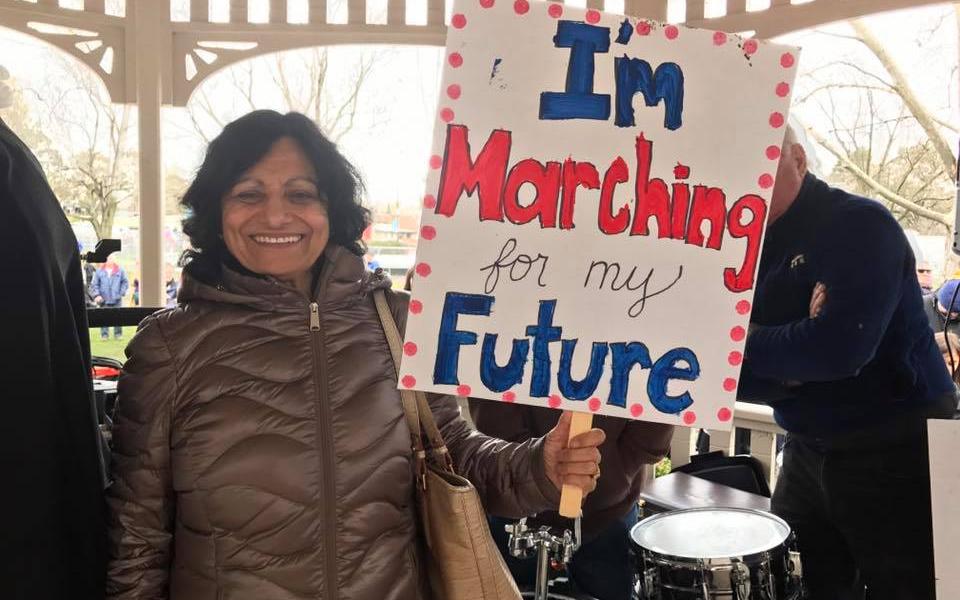 I'm
Marching
for my
Future